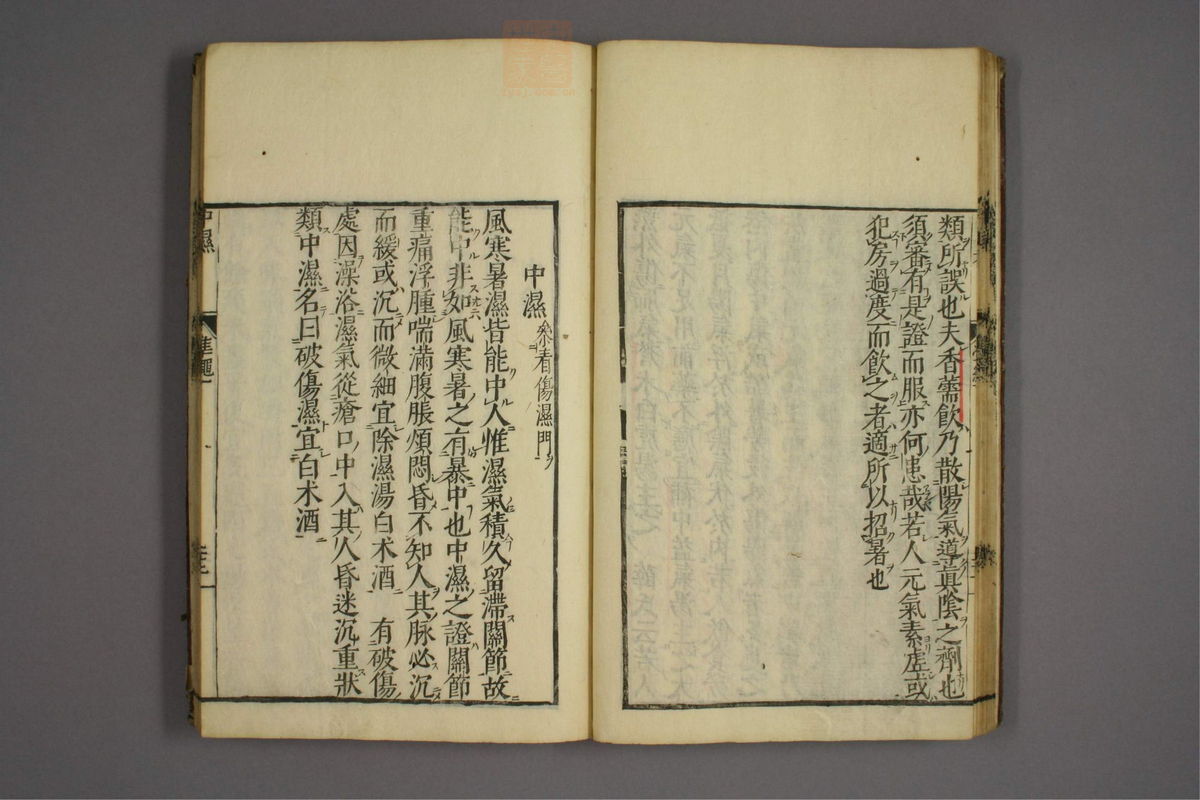 類所誤也夫香薷飲乃散陽氣導眞陰之劑也
須審有是證而服亦何患哉若人元氣素虛或
犯房過度而飲之者適所以招暑也
中濕 叅看傷濕門
風寒暑濕皆能中人惟濕氣積久留滯關節故
能中非如風寒暑之有暴中也中濕之證關節
重痛浮腫喘滿腹脹煩悶昏不知人其脉必沉
而緩或沉而微細宜除濕湯白朮酒 有破傷
處因澡浴濕氣從瘡口中入其人昏迷沉重狀
類中濕名曰破傷濕宜白朮酒
中濕